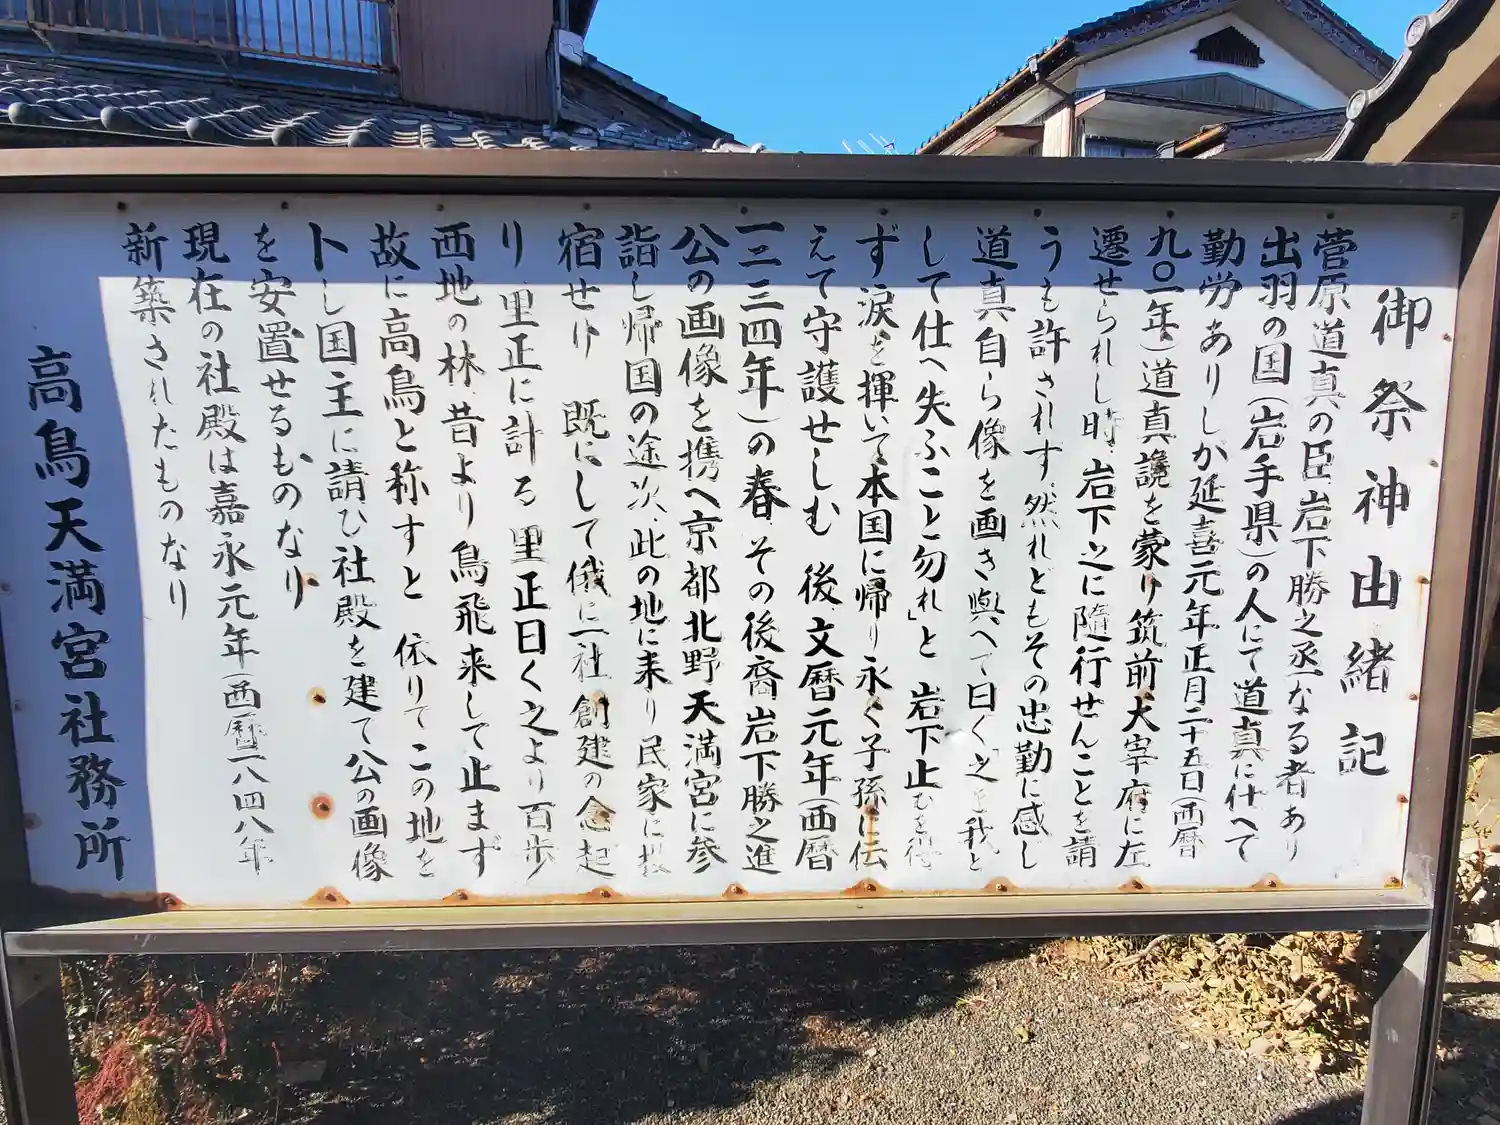 御祭神由緒記
菅原道真の臣岩下勝之丞なる者あり
出羽の国(岩手県)の人にて道真に仕へて
勤労ありしが延喜元年正月二十五日(西暦
九〇一年)道真讒を蒙り筑前大宰府に左
遷せられし時、岩下之に隨行せんことを請
うも許されす、然れどもその忠勤に感じ
道真自ら像を画き與へて曰く「之を我と
して仕へ失ふこと勿れ」と 岩下止むを得
ず涙を揮いて本国に帰り永く子孫に伝
えて守護せしむ 後、文暦元年(西暦
一二三四年)の春 その後裔岩下勝之進
公の画像を携へ京都北野天満宮に参
詣し帰国の途次、此の地に来り民家に投
宿せり 既にして俄に一社創建の念起
り里正に計る 里正曰く之より百歩
西地の林、昔より鳥飛来して止まず
故に高鳥と称すと 依りてこの地を
卜し国主に請ひ社殿を建て公の画像
を安置せるものなり
現在の社殿は嘉永元年(西暦一八四八年
新築されたものなり
高鳥天満宮社務所